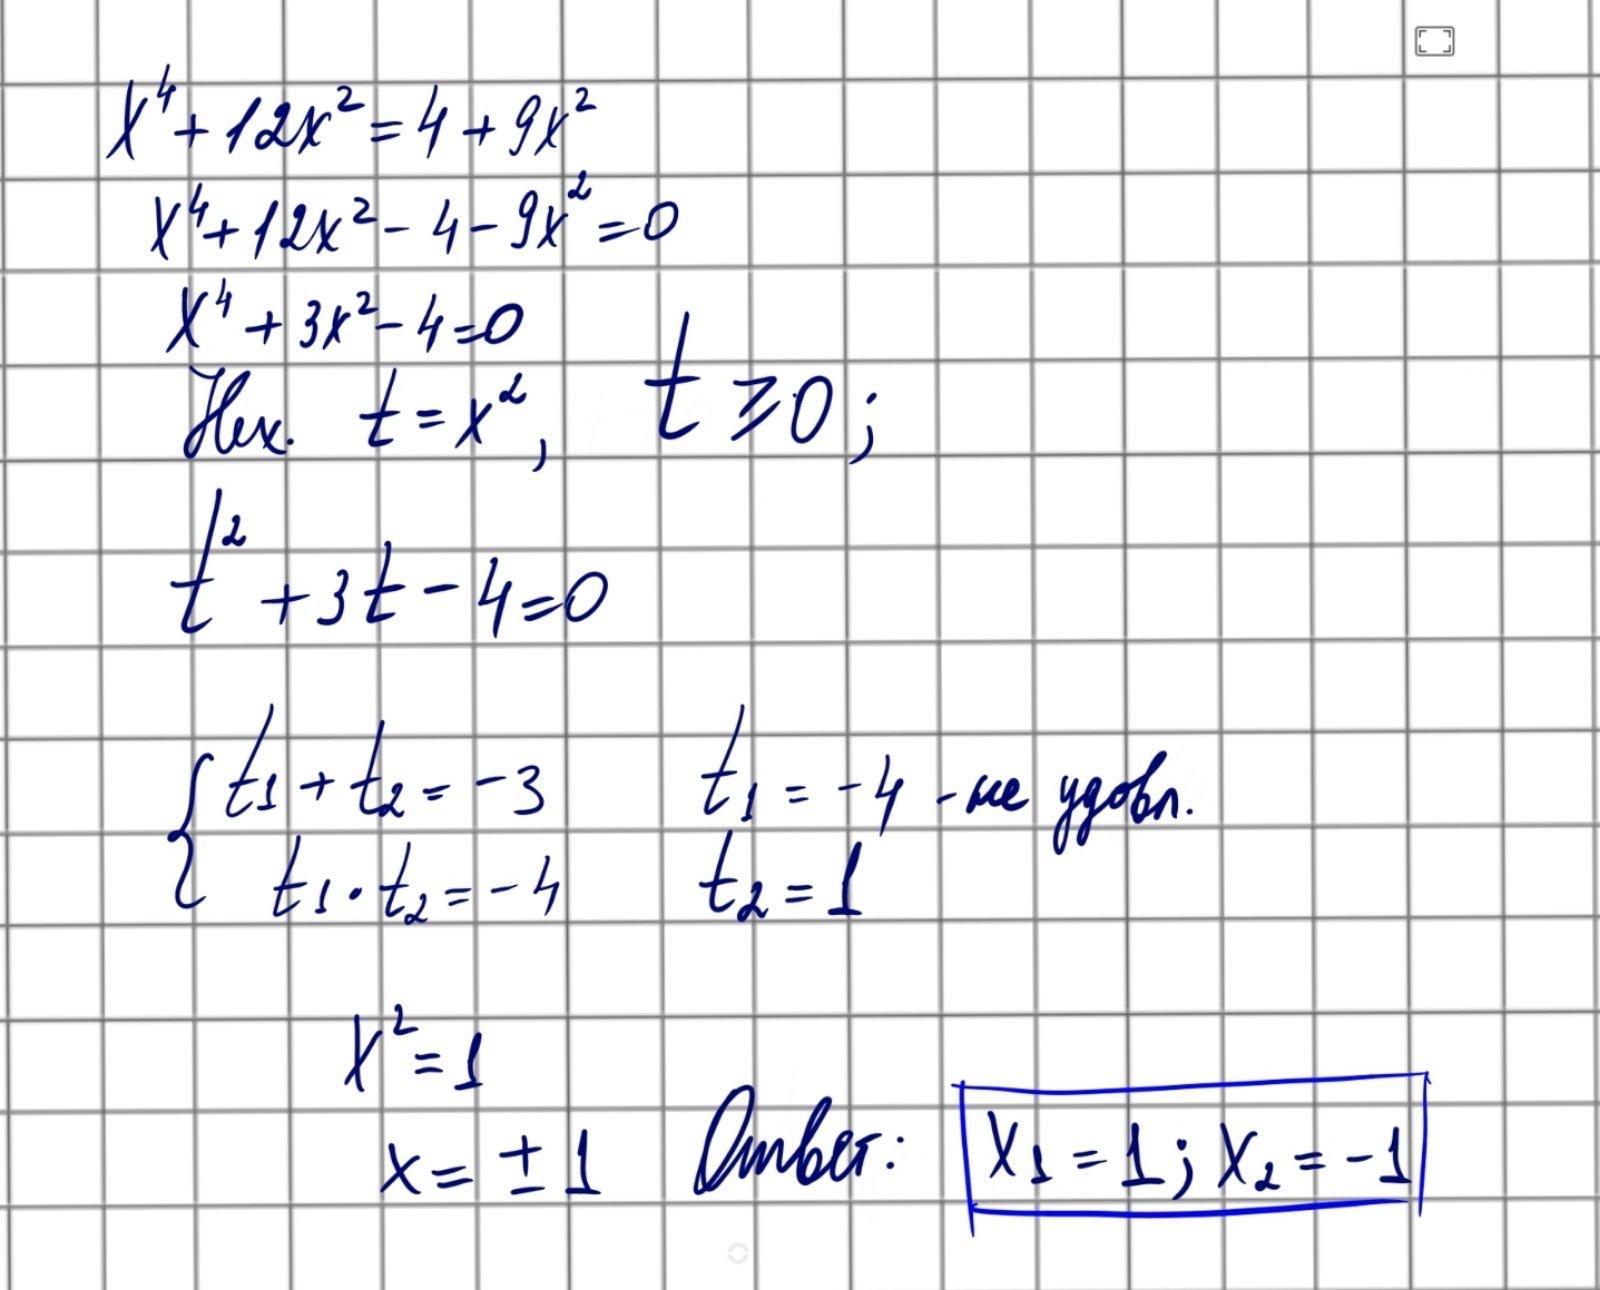 x⁴ + 12x² = 4 + 9x²
x⁴ + 12x² - 4 - 9x² = 0
x⁴ + 3x² - 4 = 0
Нех. t = x², t ⩾ 0;
t² + 3t - 4 = 0
{ t₁ + t₂ = -3 t₁ = -4 - не удовл.
t₁ · t₂ = -4 t₂ = 1
x² = 1
x = ± 1 Ответ: x₁ = 1; x₂ = -1